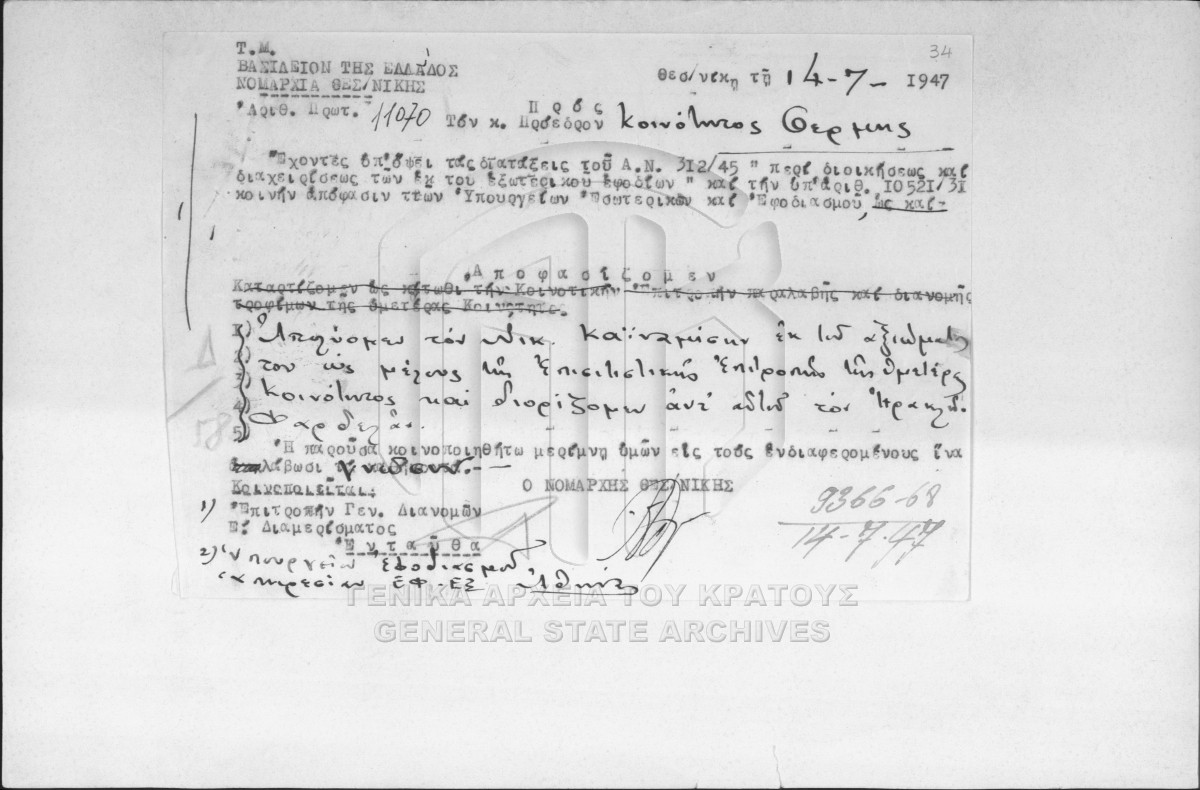 34
Τ.Μ.
ΒΑΣΙΛΕΙΟΝ ΤΗΣ ΕΛΛΑΔΟΣ
ΝΟΜΑΡΧΙΑ ΘΕΣ/ΝΙΚΗΣ
Θεσ/νίκη τῇ 14-7- 1947
Ἀριθ. Πρωτ. 11070
Πρός
Τόν κ. Πρόεδρον Κοινότητος Θέρμης
Ἔχοντες ὑπ'ὄψει τάς διατάξεις τοῦ Α.Ν. 312/45 " περί διοικήσεως καί
διαχειρίσεως τῶν ἐκ τοῦ ἐξωτερικοῦ ἐφοδίων " καί τήν ὑπ'ἀριθ. 10521/31
κοινήν ἀπόφασιν ττων Ὑπουργείων Ἐσωτερικῶν καί Ἐφοδιασμοῦ, ὡς καί-
Ἀποφασίζομεν
Καταρτίζομεν ὡς κάτωθι τήν Κοινοτικήν Ἐπιτροπήν παραλαβῆς καί διανομῆς
τροφίμων τῆς ὑμετέρας Κοινότητος.
Ἀπολύομεν τόν Νικ. ἐκ τοῦ ἀξιώματός
του ὡς μέλους τῆς Ἐπισιτιστικῆς Ἐπιτροπῆς τῆς ὑμετέρας
Κοινότητος καί διορίζομεν ἀντ' αὐτοῦ τόν Ἡρακλῆ
Ἡ παροῦσα κοινοποιηθήτω μερίμνῃ ὑμῶν εἰς τούς ἐνδιαφερομένους ἵνα
λάβωσι γνῶσιν.-
Κοινοποιεῖται:
Ο ΝΟΜΑΡΧΗΣ ΘΕΣ/ΝΙΚΗΣ
1) Ἐπιτροπήν Γεν. Διανομῶν
Ε! Διαμερίσματος
Ἐνταῦθα
2) Ὑπουργεῖον Ἐφοδιασμοῦ
Ὑπηρεσίαν ΕΦ-ΕΞ Ἀθήνας
9366-68
14-7-47
ΓΕΝΙΚΑ ΑΡΧΕΙΑ ΤΟΥ ΚΡΑΤΟΥΣ
GENERAL STATE ARCHIVES